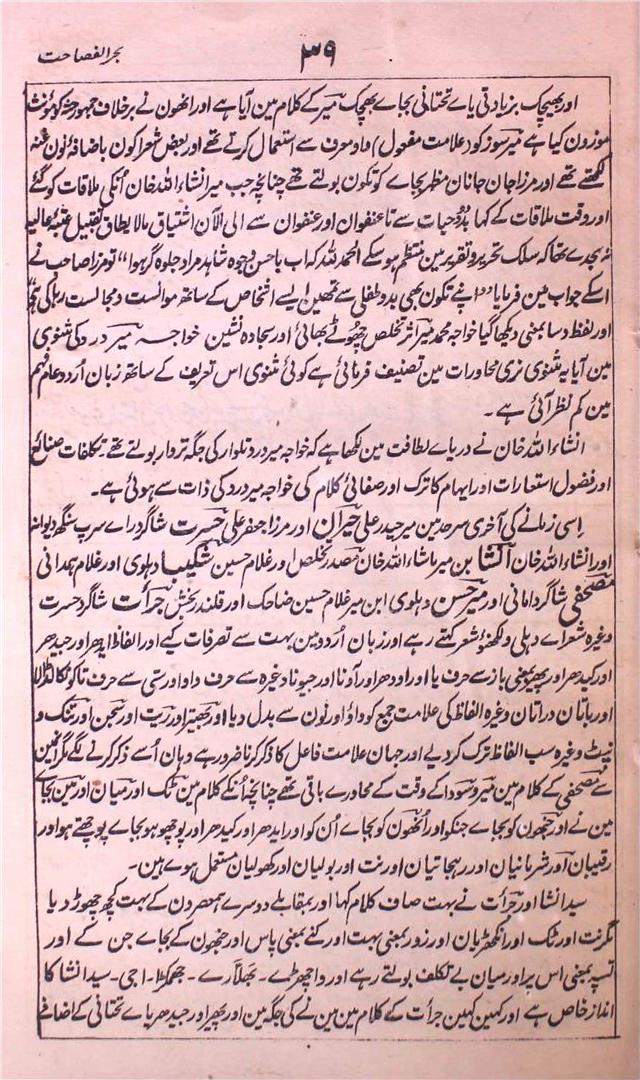 ۳۹
بحر الفصاحت
اور بھیچک بزیادتی یاے تحتانی بجاے بھچک میر کے کلام مین آیا ہے اور انھون نے برخلاف جمہور حشر کو مونث
موزون کیا ہے میر سوز کو (علامت مفعول) واو معروف سے استعمال کرتے تھے اور بعض شعرا کون باضافۂ نون غنہ
لکھتے تھے اور مرزا جان جانان مظہر بجاے کو تکون بولتے تھے چنانچہ جب میر انشاء اللہ خان اُنکی ملاقات کو گئے
اور وقت ملاقات کے کہا بدو حیات سے تا عنفوان اور عنفوان سے الی الآن اشتیاق مالا یطاق تقبیل عتبۂ عالیہ
نہ بحدے تھا کہ سلک تحریر و تقریر مین منتظم ہو سکے الحمد للہ کہ اب باحسن وجوہ شاہد مراد جلوہ گر ہوا" تو مرزا صاحب نے
اسکے جواب مین فرمایا "اپنے تکون بھی بدو طفلی سے تمھین ایسے اشخاص کے ساتھ موانست و مجالست رہا کی ہے"
اور لفظ دسا بمعنی دکھا گیا خواجہ محمد میر اثر تخلص چھوٹے بھائی اور سجادہ نشین خواجہ میر درد کی مثنوی
مین آیا یہ مثنوی نری محاورات مین تصنیف فرمائی ہے کوئی مثنوی اس تعریف کے ساتھ زبان اُردو عام فہم
مین کم نظر آئی ہے۔
انشاء اللہ خان نے دریاے لطافت مین لکھا ہے کہ خواجہ میر درد تلوار کی جگہ تروار بولتے تھے۔ تکلفات صنائع
اور فضول استعارات اور ایہام کا ترک اور صفائی کلام کی خواجہ میر درد کی ذات سے ہوئی ہے۔
اِسی زمانے کی آخری سرحد مین میر حیدر علی حیران اور مرزا جعفر علی حسرت شاگرد راے سرپ سنگھ دیوانہ
اور انشاء اللہ خان انشا بن میر ماشاء اللہ خان مصدر تخلص اور غلام حسین شکیبا دہلوی اور غلام ہمدانی
مصحفی شاگرد امانی اور میر حسن دہلوی ابن میر غلام حسین ضاحک اور قلندر بخش جرأت شاگرد حسرت
وغیرہ شعراے دہلی و لکھنؤ شعر کہتے رہے اور زبان اُردو مین بہت سے تصرفات کیے اور الفاظ ایدھر اور جیدھر
اور کیدھر اور پھیر بمعنی باز سے حرف یا اور اودھر اور آونا اور جیونا وغیرہ سے حرف واو اور ستی سے حرف تا کو نکالڈالا
اور باتان دراتان وغیرہ الفاظ کی علامت جمع کو واؤ اور نون سے بدل دیا اور بھیتر اور ریت اور سجن اور تنک و
نپٹ وغیرہ سب الفاظ ترک کر دیے اور جہان علامت فاعل کا ذکر کرنا ضرور ہے وہان اُسے ذکر کرنے لگے مگر انمین
سے مصحفی کے کلام مین میر و سودا کے وقت کے محاورے باقی تھے چنانچہ اُنکے کلام مین ٹک اور میان اور مین بجاے
مین نے اور جنھون کو بجاے جنکو اور اُنھون کو بجاے اُن کو اور ایدھر اور کیدھر اور پوچھو ہو بجاے پوچھتے ہو اور
رقیبان اور شرمانیان اور رہجاتیان اور نت اور بولیان اور کھولیان مستعمل ہوے ہین۔
سید انشا اور جرأت نے بہت صاف کلام کہا اور بمقابلے دوسرے ہمعصرون کے بہت کچھ چھوڑ دیا
مگر نت اور ٹک اور انکھڑیان اور زور بمعنی بہت اور کنے بمعنی پاس اور جنھون کے بجاے جن کے اور
تسپہ بمعنی اس پر اور میان بے تکلف بولتے رہے اور واچھڑے۔ بھلارے۔ جھمکڑا۔ اجی۔ سید انشا کا
انداز خاص ہے اور کہین کہین جرأت کے کلام مین مین نے کی جگہ مین اور پھیر اور جیدھر یاے تحتانی کے اضافے